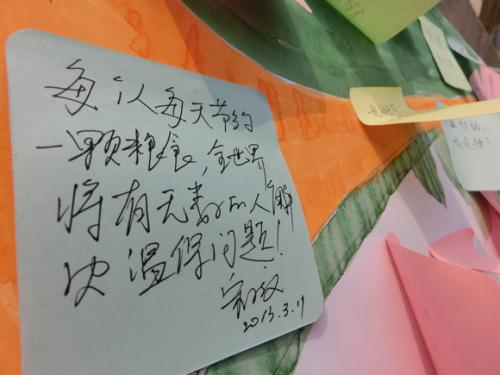 每人每天节约
一颗粮食，全世界
将有无数的人解
决温保问题！
2013.3.19